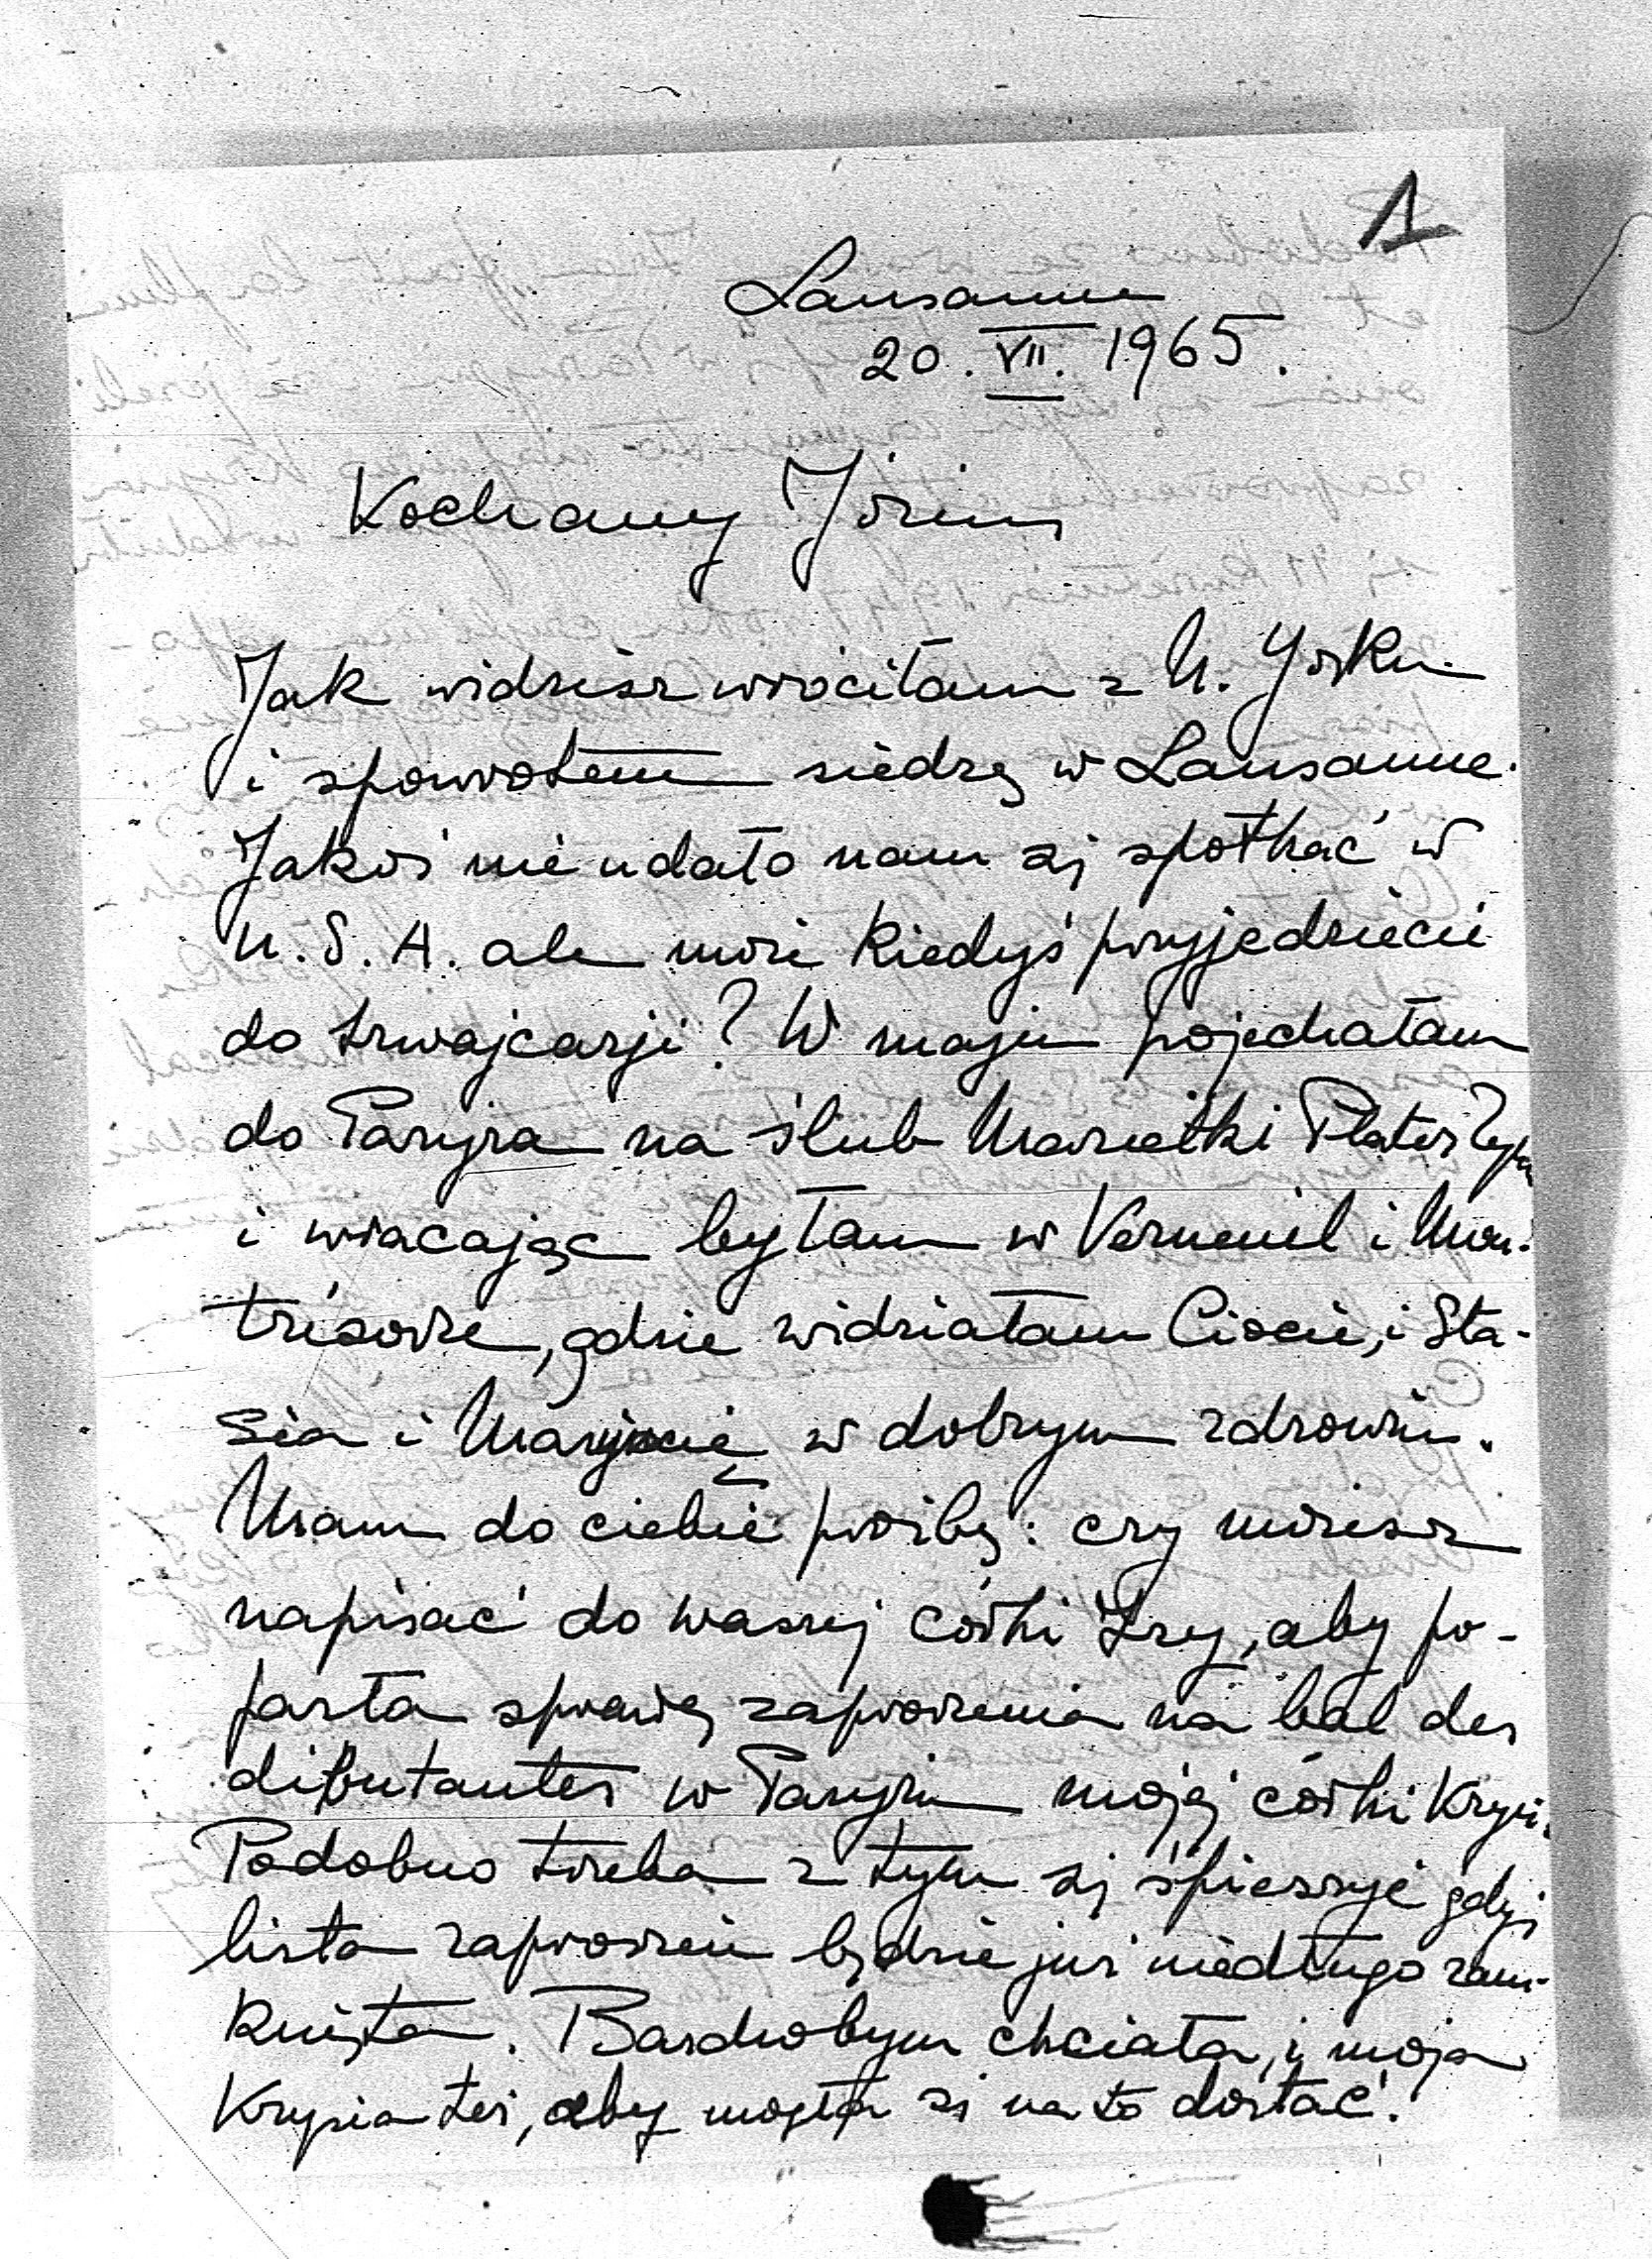 1
Lausanne
20. VII. 1965.
Kochany Józiu
Jak widzisz wróciłam z N. Yorku
i spowrotem siedzę w Lausanne.
Jakoś nie udało nam się spotkać w
U.S.A. ale może kiedyś przyjedziecie
do Szwajcarji? W maju pojechałam
do Paryża na ślub Marietki Plater Zyb
i wracając byłam w Verneuil i Mon-
trésorze, gdzie widziałam Ciocię, i Sta-
sia i w dobrym zdrowiu.
Mam do ciebie prośbę: czy możesz
napisać do waszej córki Izy, aby po-
parła sprawę zaproszenia na bal des
débutantes w Paryżu mojej córki Krysi.
Podobno trzeba z tym się śpieszyć gdyż
lista zaproszeń będzie już niedługo zam-
knięta. Bardzobym chciała, i moja
Krysia też, aby mogła się na to dostać.